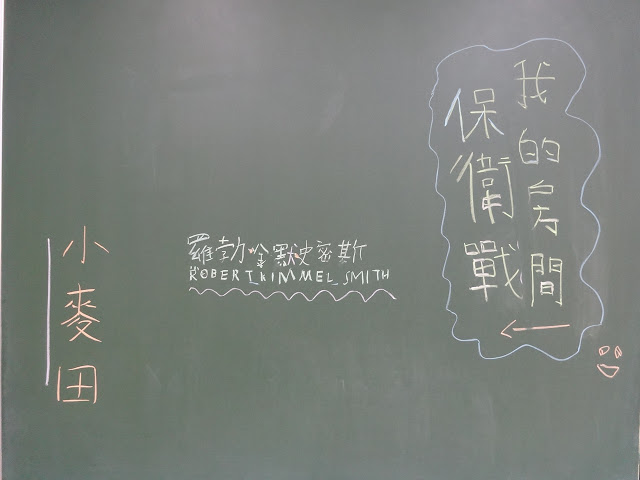 我的房間
保衛戰
羅勃金默史密斯
ROBERT KIMMEL SMITH
小麥田